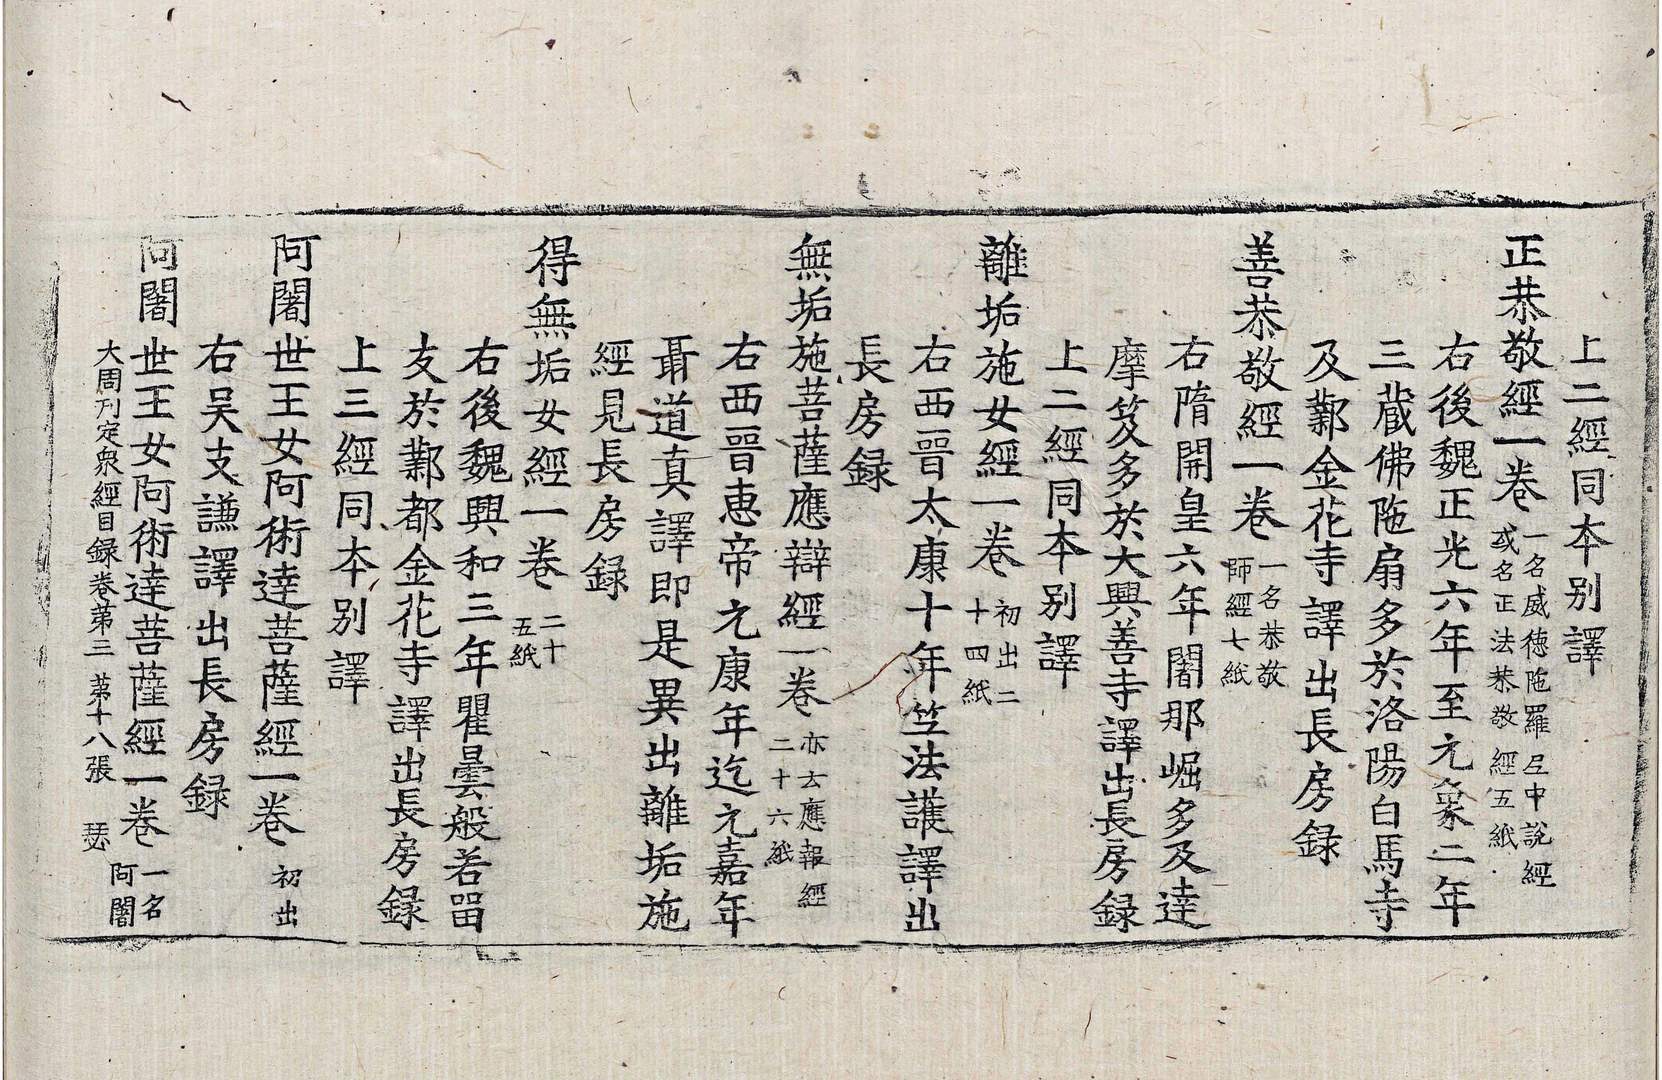 上二經同本别譯
正恭敬經一卷 一名威德陁羅𡰱中說經 或名正法恭敬經五紙
右後魏正光六年至元象二年
三藏佛陁扇多於洛陽白馬寺
及鄴金花寺譯出長房録
善恭敬經一卷 一名恭敬 師經七紙
右隋開皇六年闍那崛多及達
摩笈多於大興善寺譯出長房録
上二經同本别譯
離垢施女經一卷 初出二 十四紙
右西晉太康十年竺法護譯出
長房録
無垢施菩薩應辯經一卷 亦云應報經 二十六紙
右西晉惠帝元康年迄元嘉年
聶道真譯即是異出離垢施
經見長房録
得無垢女經一卷 二十 五紙
右後魏興和三年瞿曇般若留
支於鄴都金花寺譯出長房録
上三經同本别譯
阿闍世王女阿術達菩薩經一卷 初出
右吴支謙譯出長房録
阿闍世王女阿術達菩薩經一卷 一名 阿闍
大周刋定衆經目録卷第三 第十八張 瑟